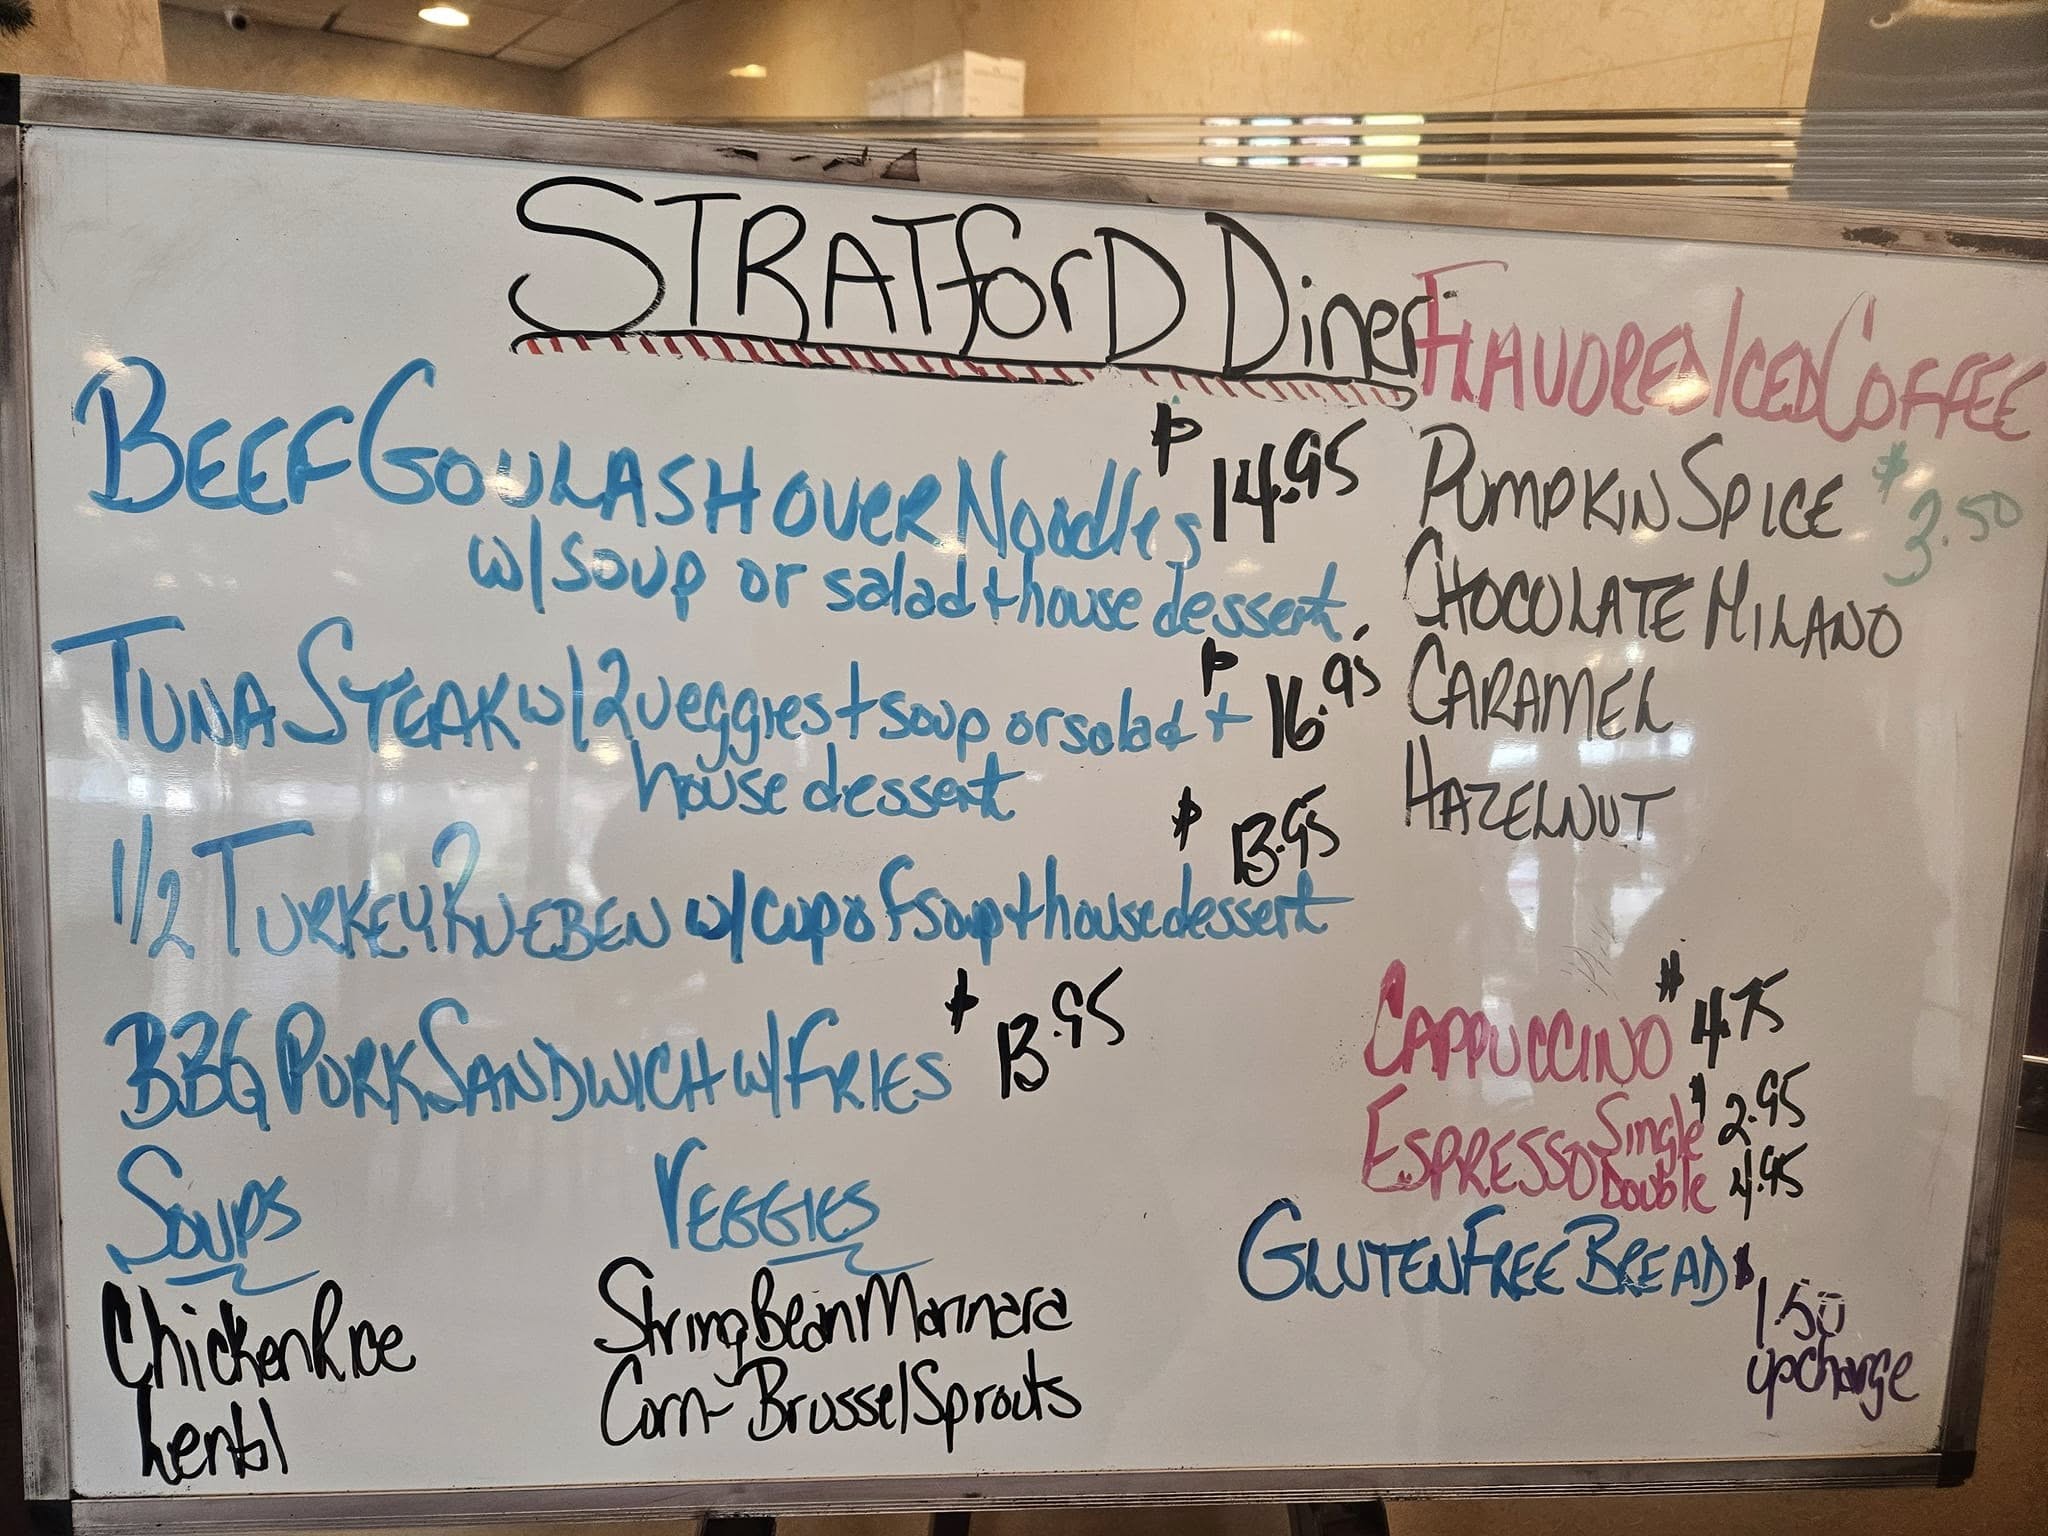 STRATforD Diner
BEEF GOULASH OVER Noodles $14.95
w/soup or salad + house dessert
TUNA STEAK w/2 veggies + soup or salad + $16.95
house dessert
1/2 TURKEY RUEBEN w/cup of soup + house dessert $13.95
BBQ PORK SANDWICH W/FRIES $13.95
SOUPS
Chicken Rice
Lentil
VEGGIES
String Bean Marinara
Corn - Brussel Sprouts
FLAVORED ICED COFFEE
PUMPKIN SPICE $3.50
CHOCOLATE MILANO
CARAMEL
HAZELNUT
CAPPUCCINO $4.75
ESPRESSO Single $2.95
Double 4.95
GLUTEN FREE BREAD $1.50
upcharge